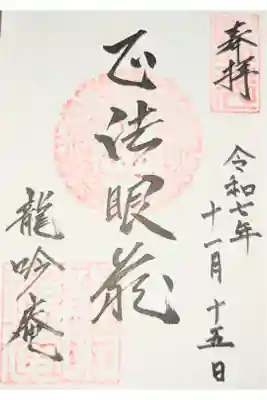 奉拝
令和七年
十一月十五日
正法眼蔵
龍吟庵